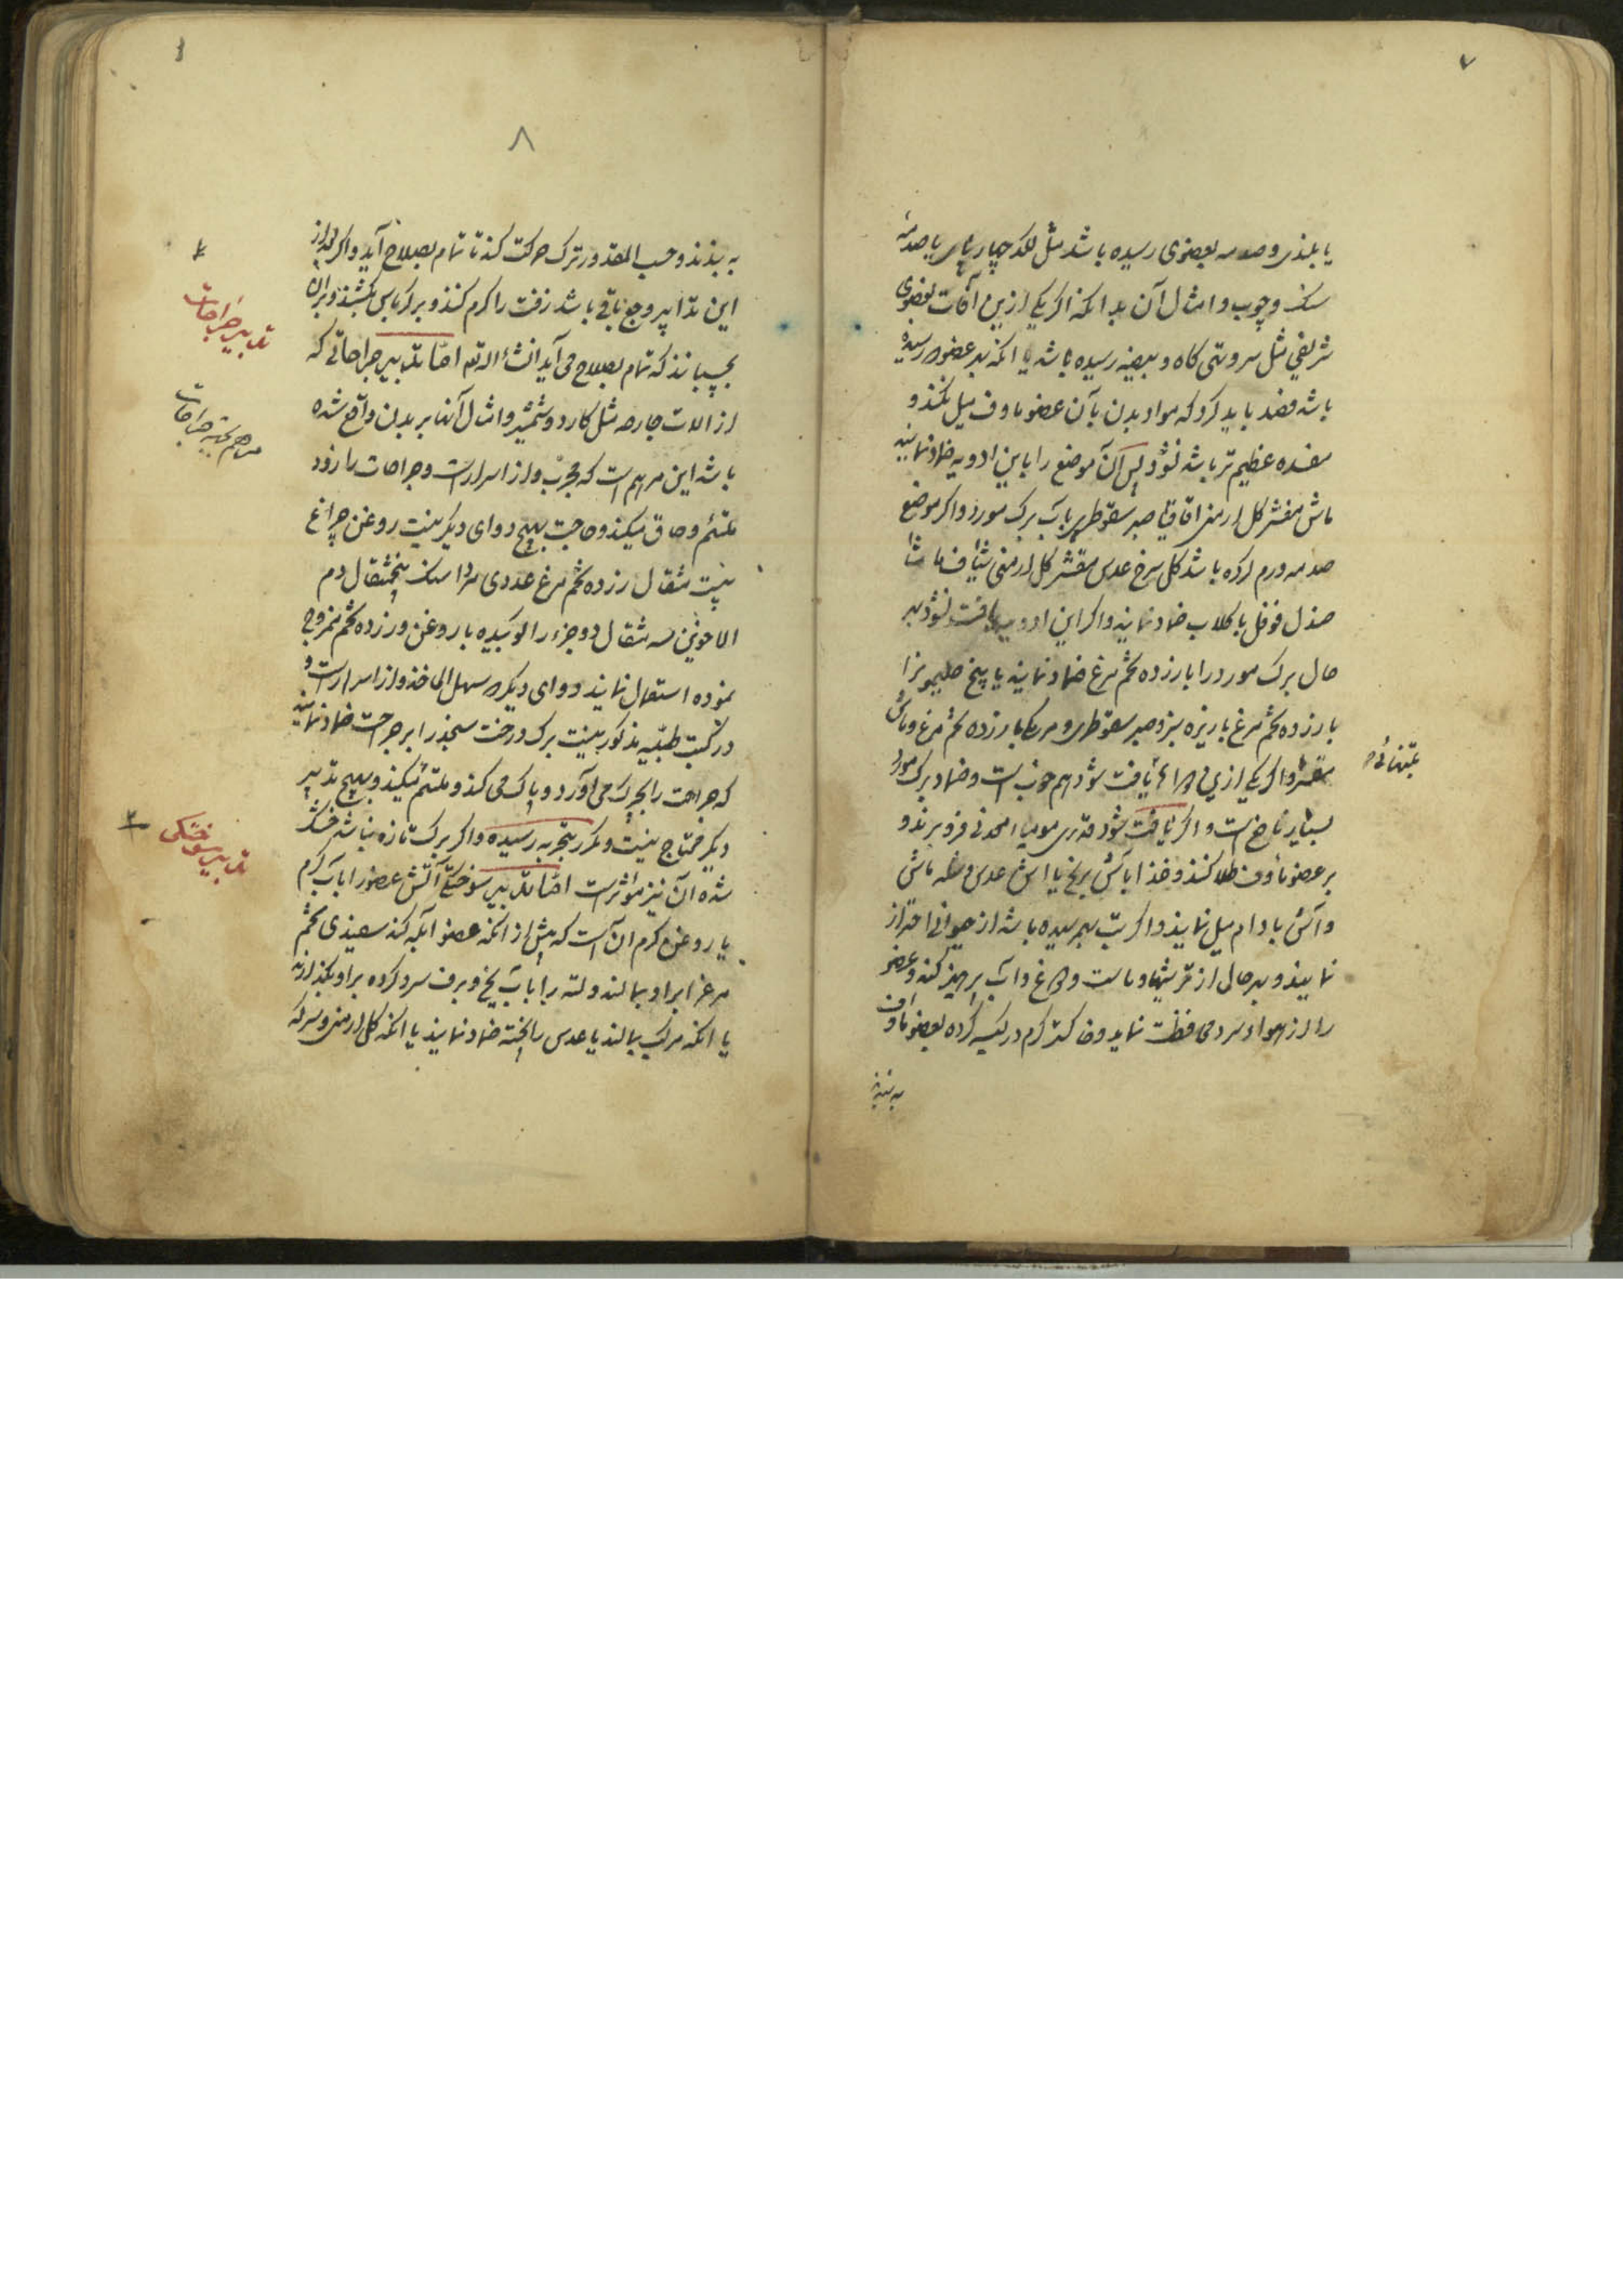 ۷
یا بلندی و صدمه بعضوی رسیده باشد مثل لکد چهارپای یا صدمه
سنک و چوب و امثال آن بدانکه اکر یکی ازین آفات بعضوی
شریفی مثل سر و تهی کاه و بیضه رسیده باشد یا انکه بدو عضو رسیده
باشد فصد باید کرد که مواد بدن بآن عضو ماوف میل نکند و
مفسده عظیم تر باشد نشود پس آن موضع را باین ادویه ضماد نمایند
ماش مقشر کل ارمنی اقاقیا صبر سقوطری بآب برک مورد واکر موضع
صدمه ورم کرده باشد کل سرخ عدس مقشر کل ارمنی شیاف مامیثا
صندل فوفل با کلاب ضماد نمایند واکر این ادویه یافت نشود بهر
حال برک مورد را با زرده تخم مرغ ضماد نمایند یا پیخ
با زرده تخم مرغ با زیره سبز و صبر سقوطری و مرمکی با زرده تخم مرغ و ماش
مقشر واکر یکی ازین دوا یافت شود هم خوبست و ضماد برک مورد
بتنهائی
بسیار نافع است و اکر یافت شود قدری مومیاء معدنی فرو برند و
بر عضو مأوف طلا کنند و غذا با آش برنج یا آش عدس و شله ماش
و آش بادام میل نمایند و اکر تب بهم رسیده باشد از حیوانی احتراز
نمایند و بهر حال از ترشیها و ماست و دوغ و آب پرهیز کنند و عضو
را از هواء سرد محافظت نمایند و خاکستر کرم در کیسه کرده بعضو ماوف
به بندند
۸
به بندند و حسب المقدور ترک حرکت کند تا تمام بصلاح آید واکر بعد از
این تدابیر وجع باقی باشد زفت را کرم کنند و بر کرباس بکشند و بران
بچسبانند که تمام بصلاح می آید انشاء الله تعا اما تدابیر جراحاتی که
تدبیر جراحات
از الات جارحه مثل کارد و شمشیر و امثال آنها بر بدن واقع شده
مرهم بجهة جراحات
باشد این مرهم است که مجرب و از اسرارست و جراحات را زود
ملتئم و چاق میکند و حاجت بهیچ دوای دیکر نیست روغن چراغ
بیست مثقال زرده تخم مرغ عددی مرداسنک پنجمثقال دم
الاخوین سه مثقال دو جزء را کوبیده با روغن و زرده تخم ممزوج
نموده استعمال نمایند دوای دیکر سهل الماخذ و از اسرارست و
در کتب طبیه مذکور نیست برک درخت سنجد را بر جراحت ضماد نمایند
که جراحت را بچرک می آورد و پاک می کند و ملتئم میکند و بهیچ تدبیر
دیکر محتاج نیست و مکرر بتجربه رسیده واکر برک تازه نباشد خشک
شده آن نیز مؤثرست اما تدبیر سوختکی آتش عضو را بآب کرم
تدبیر سوختکی
یا روغن کرم آنست که پیش از انکه عضو آبله کند سفیدی تخم
مرغ را بر او بمالند و لته را بآب یخ و برف سرد کرده بر او بکذارند
یا انکه مرکب بمالند یا عدس را پخته ضماد نمایند یا انکه کل ارمنی و سرکه